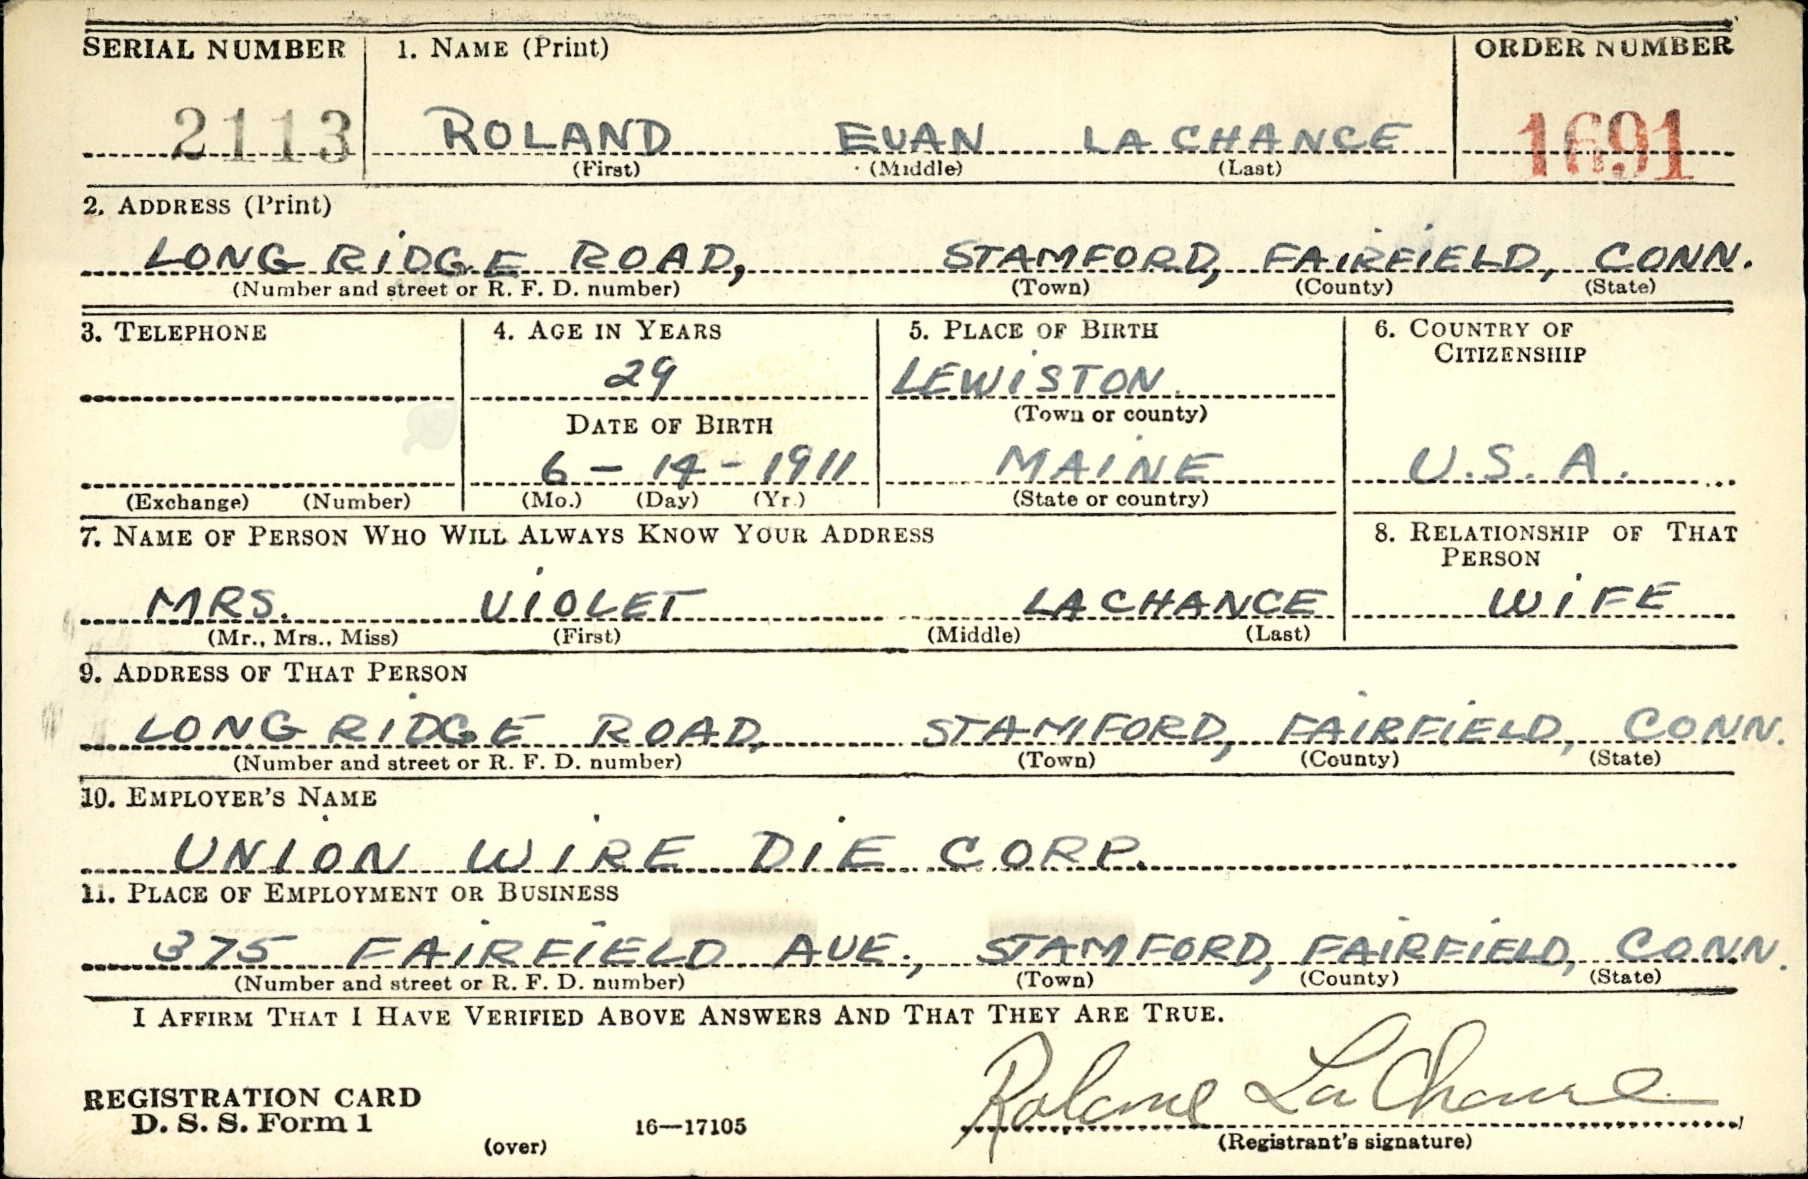 SERIAL NUMBER 1. NAME (Print) ORDER NUMBER
2113 ROLAND EVAN LA CHANCE 1691
(First) (Middle) (Last)
2. ADDRESS (Print)
LONG RIDGE ROAD, STAMFORD, FAIRFIELD, CONN.
(Number and street or R. F. D. number) (Town) (County) (State)
3. TELEPHONE 4. AGE IN YEARS 5. PLACE OF BIRTH 6. COUNTRY OF CITIZENSHIP
29 LEWISTON
(Town or county)
DATE OF BIRTH
6 - 14 - 1911 MAINE U.S.A.
(Exchange) (Number) (Mo.) (Day) (Yr.) (State or country)
7. NAME OF PERSON WHO WILL ALWAYS KNOW YOUR ADDRESS 8. RELATIONSHIP OF THAT PERSON
MRS. VIOLET LACHANCE WIFE
(Mr., Mrs., Miss) (First) (Middle) (Last)
9. ADDRESS OF THAT PERSON
LONG RIDGE ROAD, STAMFORD, FAIRFIELD, CONN.
(Number and street or R. F. D. number) (Town) (County) (State)
10. EMPLOYER'S NAME
UNION WIRE DIE CORP.
11. PLACE OF EMPLOYMENT OR BUSINESS
375 FAIRFIELD AVE., STAMFORD, FAIRFIELD, CONN.
(Number and street or R. F. D. number) (Town) (County) (State)
I AFFIRM THAT I HAVE VERIFIED ABOVE ANSWERS AND THAT THEY ARE TRUE.
Roland LaChance
REGISTRATION CARD
D. S. S. Form 1 16—17105
(over) (Registrant's signature)